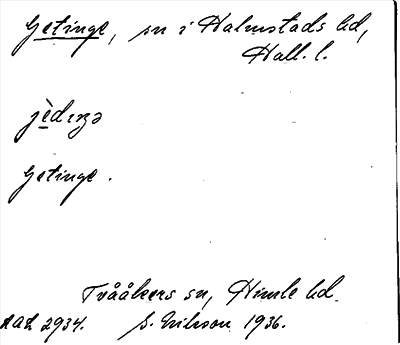 Getinge, sn i Halmstads hd,
Hall. l.
jèdıŋə
Getinge.
Tvååkers sn, Himle hd.
AAL 2934. S. Erikson 1936.